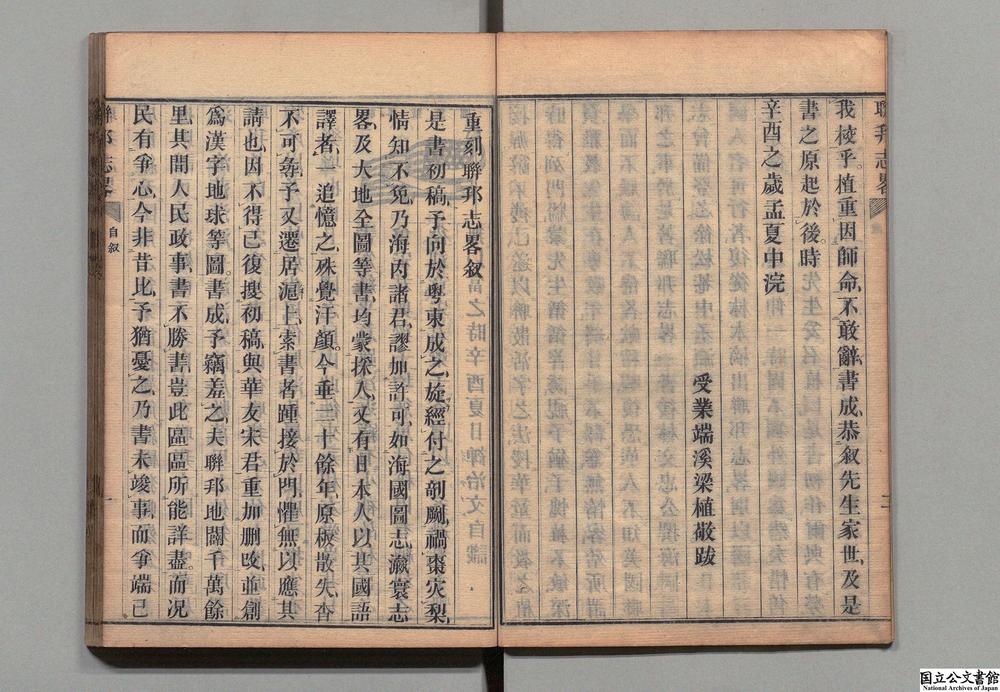 聯邦志畧
二
我校乎。植重因師命、不敢辭、書成、恭叙先生家世、及是
書之原起於後。時
辛酉之歲孟夏中浣
受業端溪梁植敬跋
重刻聯邦志畧叙
是書初稿、予向於粵東成之、旋經付之剞劂、禍棗灾梨、
情知不免、乃海内諸君、謬加許可、如海國圖志、瀛寰志
畧、及大地全圖等書、均蒙採入、又有日本人以其國語
譯者、一追憶之、殊覺汗顏。今垂二十餘年、原板散失、杳
不可尋、予又遷居滬上、索書者踵接於門、懼無以應其
請也、因不得已復搜初稿、與華友宋君、重加删改、並創
爲漢字地球等圖。書成、予竊羞之、夫聯邦地闊千萬餘
里、其間人民政事、書不勝書、豈此區區所能詳盡。而况
民有爭心、今非昔比、予猶憂之、乃書未竣事、而爭端已
聯邦志畧
自叙
一
国立公文書館
National Archives of Japan